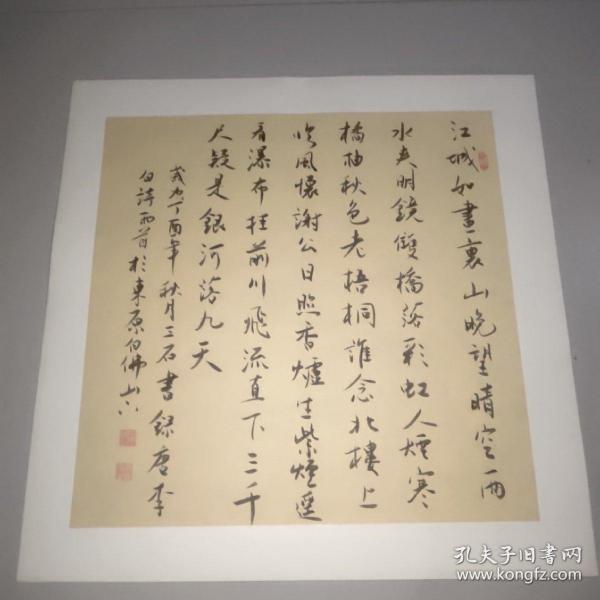 江城如畫裏山晚望晴空兩
水夾明鏡雙橋落彩虹人煙寒
橘柚秋色老梧桐誰念北樓上
臨風懷謝公日照香爐生紫煙遥
看瀑布挂前川飛流直下三千
尺疑是銀河落九天
歲在丁酉年秋月三石書録唐李
白詩兩首於東原白佛山下
孔夫子旧书网
www.kongfz.com